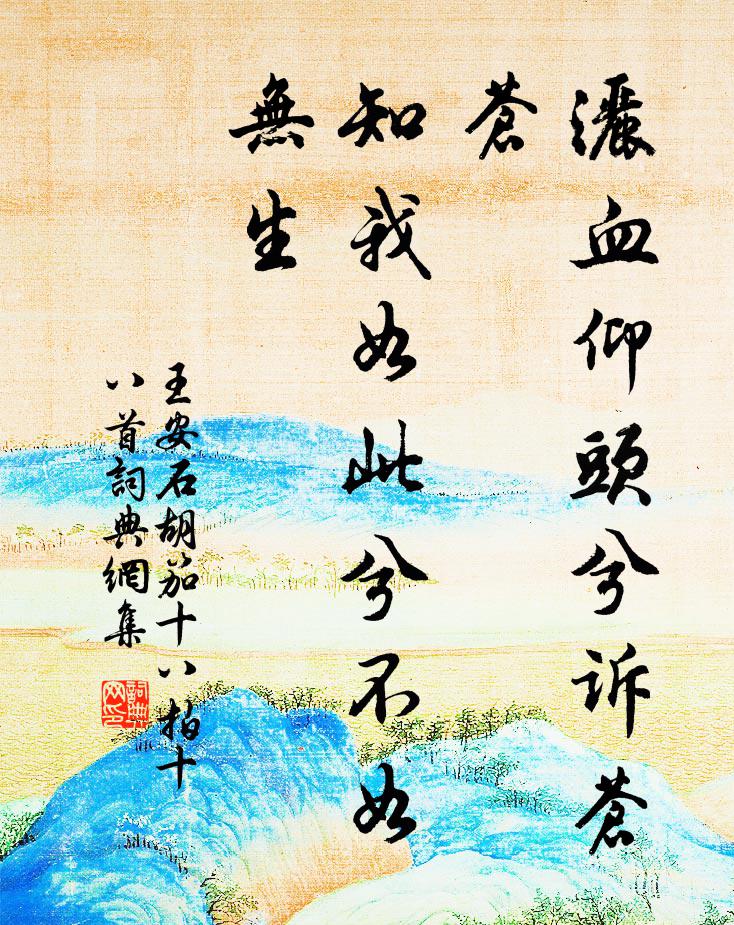 灑血仰頭兮訴蒼
蒼
知我如此兮不如
無生
王安石胡笳十八拍十
八首詞典網集
詞典
网印